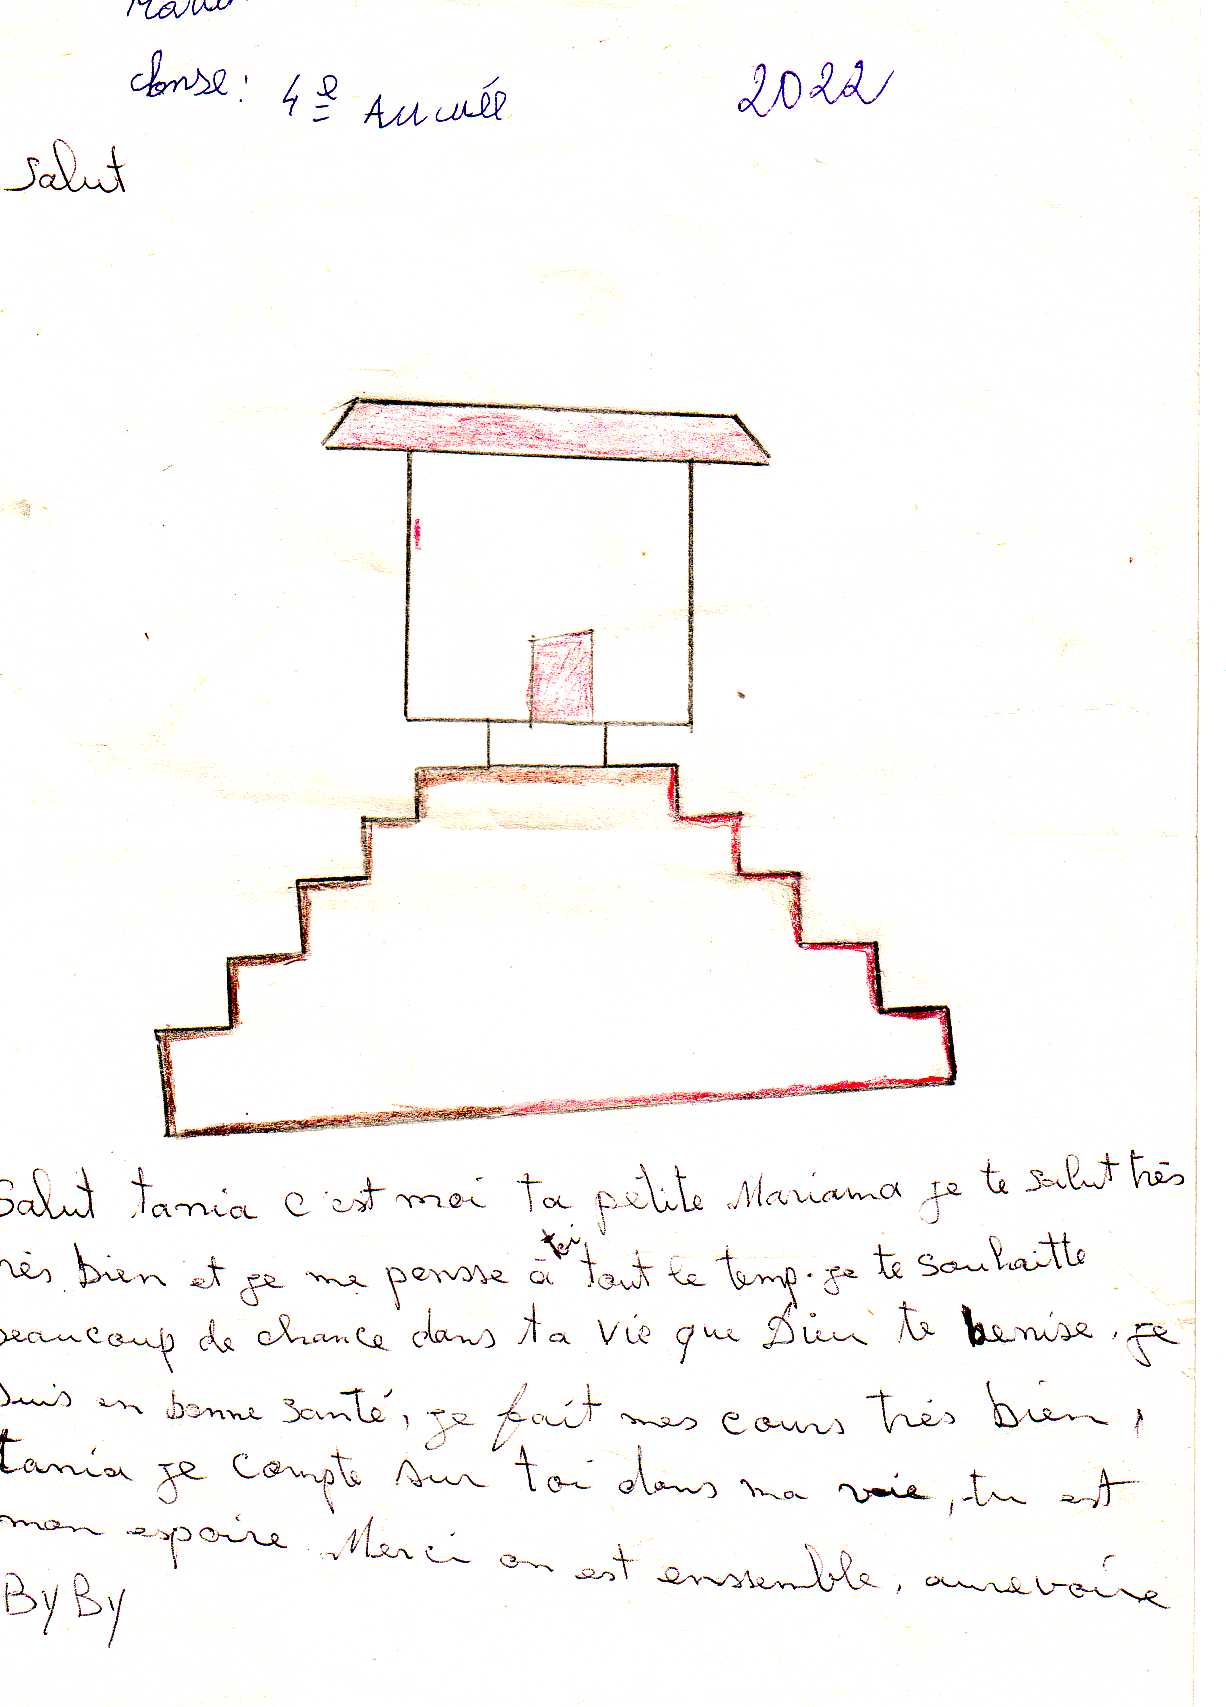 classe: 4e Année 2022
Salut
Salut tania c'est moi ta petite Mariama je te salut très
rès bien et je me pensse à toi tout le temp. je te souhaitte
beaucoup de chance dans ta vie que Dieu te benise. je
suis en bonne santé, je fait mes cours très bien,
tania je compte sur toi dans ma voie, tu est
mon espoire Merci on est enssemble, aurevoire
By By